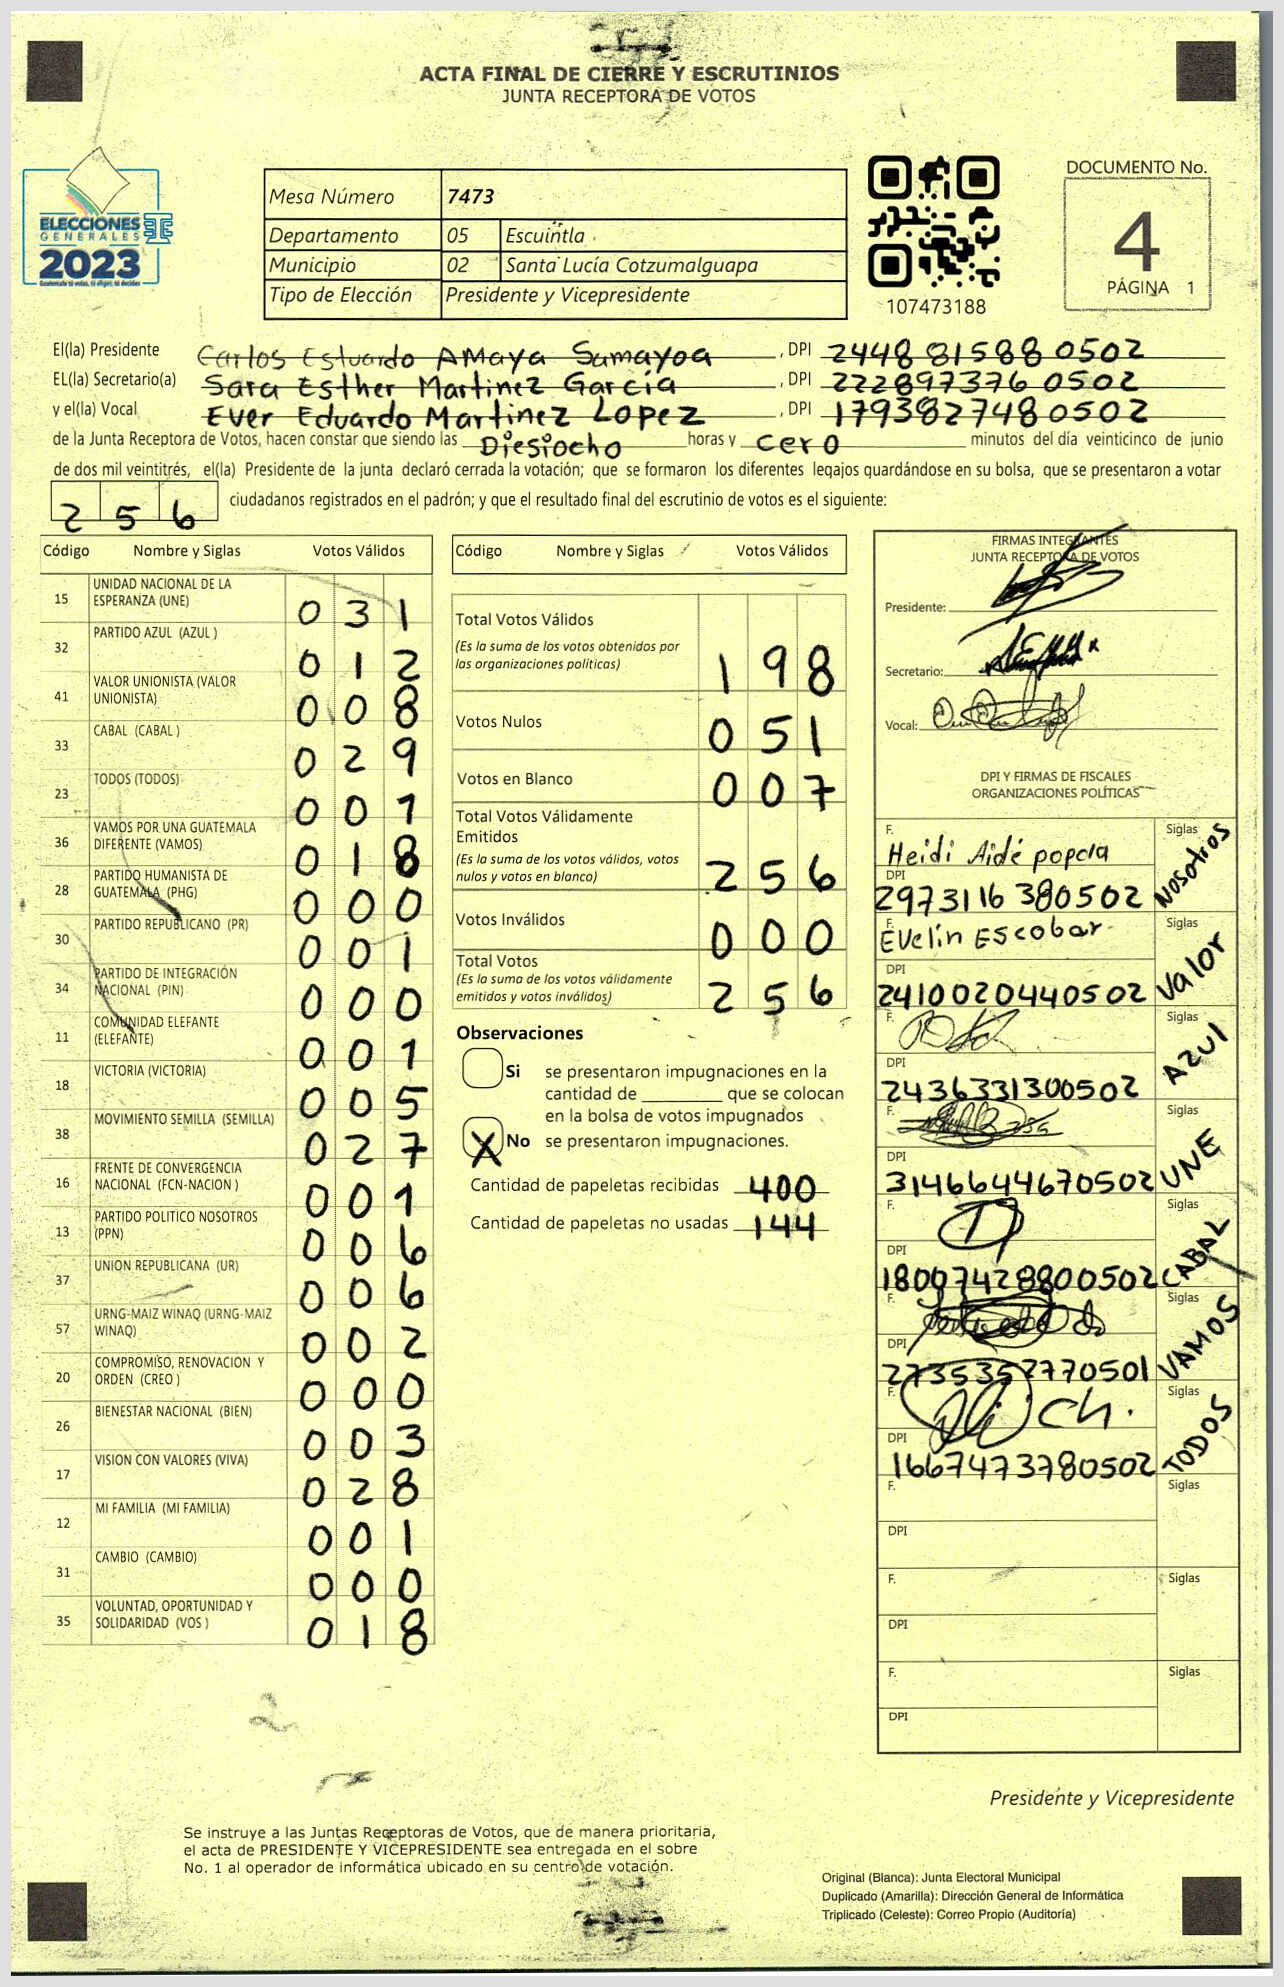 ACTA FINAL DE CIERRE Y ESCRUTINIOS
JUNTA RECEPTORA DE VOTOS
ELECCIONES
GENERALES
2023
Mesa Número 7473
Departamento 05 Escuintla
Municipio 02 Santa Lucía Cotzumalguapa
Tipo de Elección Presidente y Vicepresidente
107473188
DOCUMENTO No.
4
PÁGINA 1
El(la) Presidente Carlos Estuardo AMaya Samayoa , DPI 2448 81588 0502
EL(la) Secretario(a) Sara Esther Martinez García , DPI 222897376 0502
y el(la) Vocal Ever Eduardo Martinez Lopez , DPI 1793827480502
de la Junta Receptora de Votos, hacen constar que siendo las Diesiocho horas y cero minutos del día veinticinco de junio
de dos mil veintitrés, el(la) Presidente de la junta declaró cerrada la votación; que se formaron los diferentes legajos guardándose en su bolsa, que se presentaron a votar
256 ciudadanos registrados en el padrón; y que el resultado final del escrutinio de votos es el siguiente:
Código Nombre y Siglas Votos Válidos
15 UNIDAD NACIONAL DE LA ESPERANZA (UNE) 031
32 PARTIDO AZUL (AZUL ) 012
41 VALOR UNIONISTA (VALOR UNIONISTA) 008
33 CABAL (CABAL ) 029
23 TODOS (TODOS) 001
36 VAMOS POR UNA GUATEMALA DIFERENTE (VAMOS) 018
28 PARTIDO HUMANISTA DE GUATEMALA (PHG) 000
30 PARTIDO REPUBLICANO (PR) 001
34 PARTIDO DE INTEGRACIÓN NACIONAL (PIN) 000
11 COMUNIDAD ELEFANTE (ELEFANTE) 001
18 VICTORIA (VICTORIA) 005
38 MOVIMIENTO SEMILLA (SEMILLA) 027
16 FRENTE DE CONVERGENCIA NACIONAL (FCN-NACION ) 001
13 PARTIDO POLITICO NOSOTROS (PPN) 006
37 UNION REPUBLICANA (UR) 006
57 URNG-MAIZ WINAQ (URNG-MAIZ WINAQ) 002
20 COMPROMISO, RENOVACION Y ORDEN (CREO ) 000
26 BIENESTAR NACIONAL (BIEN) 003
17 VISION CON VALORES (VIVA) 028
12 MI FAMILIA (MI FAMILIA) 001
31 CAMBIO (CAMBIO) 000
35 VOLUNTAD, OPORTUNIDAD Y SOLIDARIDAD (VOS ) 018
2
Código Nombre y Siglas Votos Válidos
Total Votos Válidos
(Es la suma de los votos obtenidos por
las organizaciones políticas) 198
Votos Nulos 051
Votos en Blanco 007
Total Votos Válidamente
Emitidos
(Es la suma de los votos válidos, votos
nulos y votos en blanco) 256
Votos Inválidos 000
Total Votos
(Es la suma de los votos válidamente
emitidos y votos inválidos) 256
Observaciones
Si se presentaron impugnaciones en la
cantidad de ________ que se colocan
en la bolsa de votos impugnados
X No se presentaron impugnaciones.
Cantidad de papeletas recibidas 400
Cantidad de papeletas no usadas 144
FIRMAS INTEGRANTES
JUNTA RECEPTORA DE VOTOS
Presidente:
Secretario:
Vocal:
DPI Y FIRMAS DE FISCALES
ORGANIZACIONES POLÍTICAS
F. Heidi Aidé popola Siglas Nosotros
DPI 2973116 380502
F. Evelin Escobar Siglas Valor
DPI 2410020440502
F. Siglas AZUL
DPI 2436331300502
F. Siglas UNE
DPI 3146644670502
F. Siglas CABAL
DPI 18007428800502
F. Siglas VAMOS
DPI 2735352770501
F. Siglas TODOS
DPI 1667473780502
F. Siglas
DPI
F. Siglas
DPI
F. Siglas
DPI
Presidente y Vicepresidente
Se instruye a las Juntas Receptoras de Votos, que de manera prioritaria,
el acta de PRESIDENTE Y VICEPRESIDENTE sea entregada en el sobre
No. 1 al operador de informática ubicado en su centro de votación.
Original (Blanca): Junta Electoral Municipal
Duplicado (Amarilla): Dirección General de Informática
Triplicado (Celeste): Correo Propio (Auditoría)